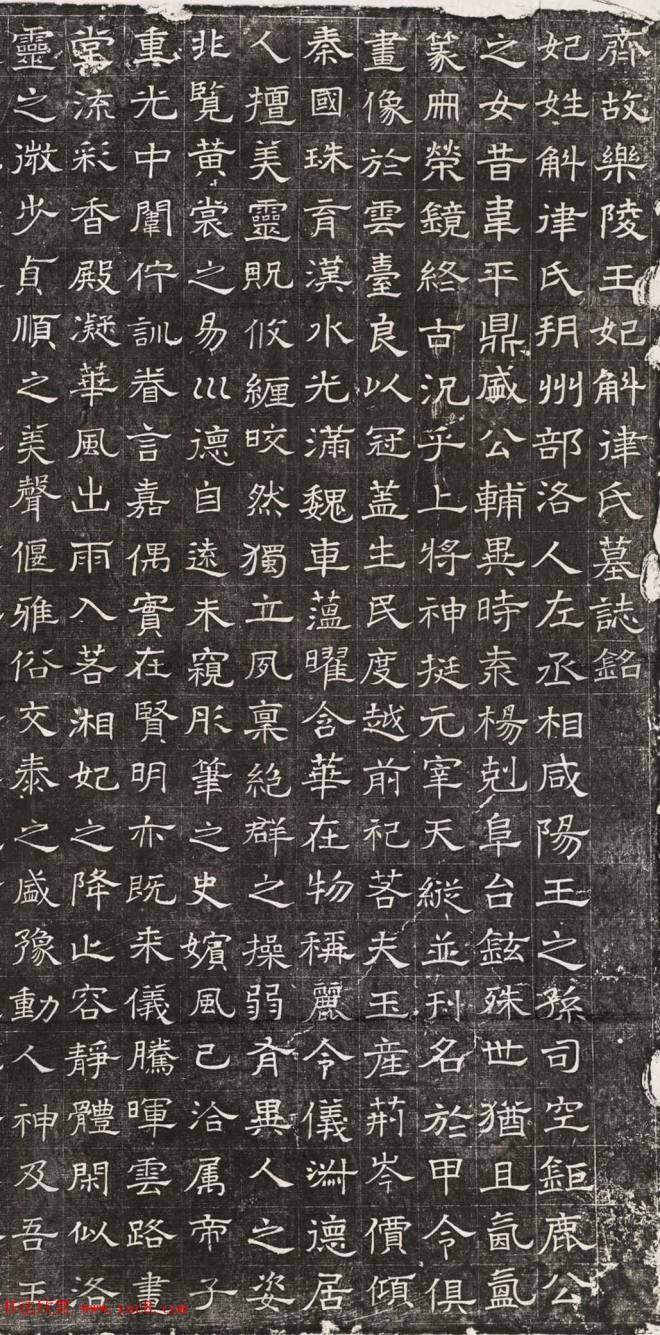 齊故樂陵王妃斛律氏墓誌銘
妃姓斛律氏朔州部洛人左丞相咸陽王之孫司空鉅鹿公
之女昔韋平鼎盛公輔異時袁楊剋阜台鉉殊世猶且氤氳
篆冊榮鏡終古況乎上將神挺元宰天縱並刊名於甲令俱
畫像於雲臺良以冠蓋生民度越前祀若夫玉產荊岑價傾
秦國珠育漢水光滿魏車薀曜含華在物稱麗令儀淑德居
人擅美靈貺攸纏皎然獨立夙稟絕群之操弱有異人之姿
非覽黃裳之易巛德自遠未窺彤筆之史嬪風已洽属帝子
重光中闈佇訓眷言嘉偶實在賢明亦既来儀騰暉雲路畫
堂流彩香殿凝華風出雨入若湘妃之降止容靜體閑似洛
靈之微步貞順之美聲偃雅俗交泰之盛豫動人神及吾王